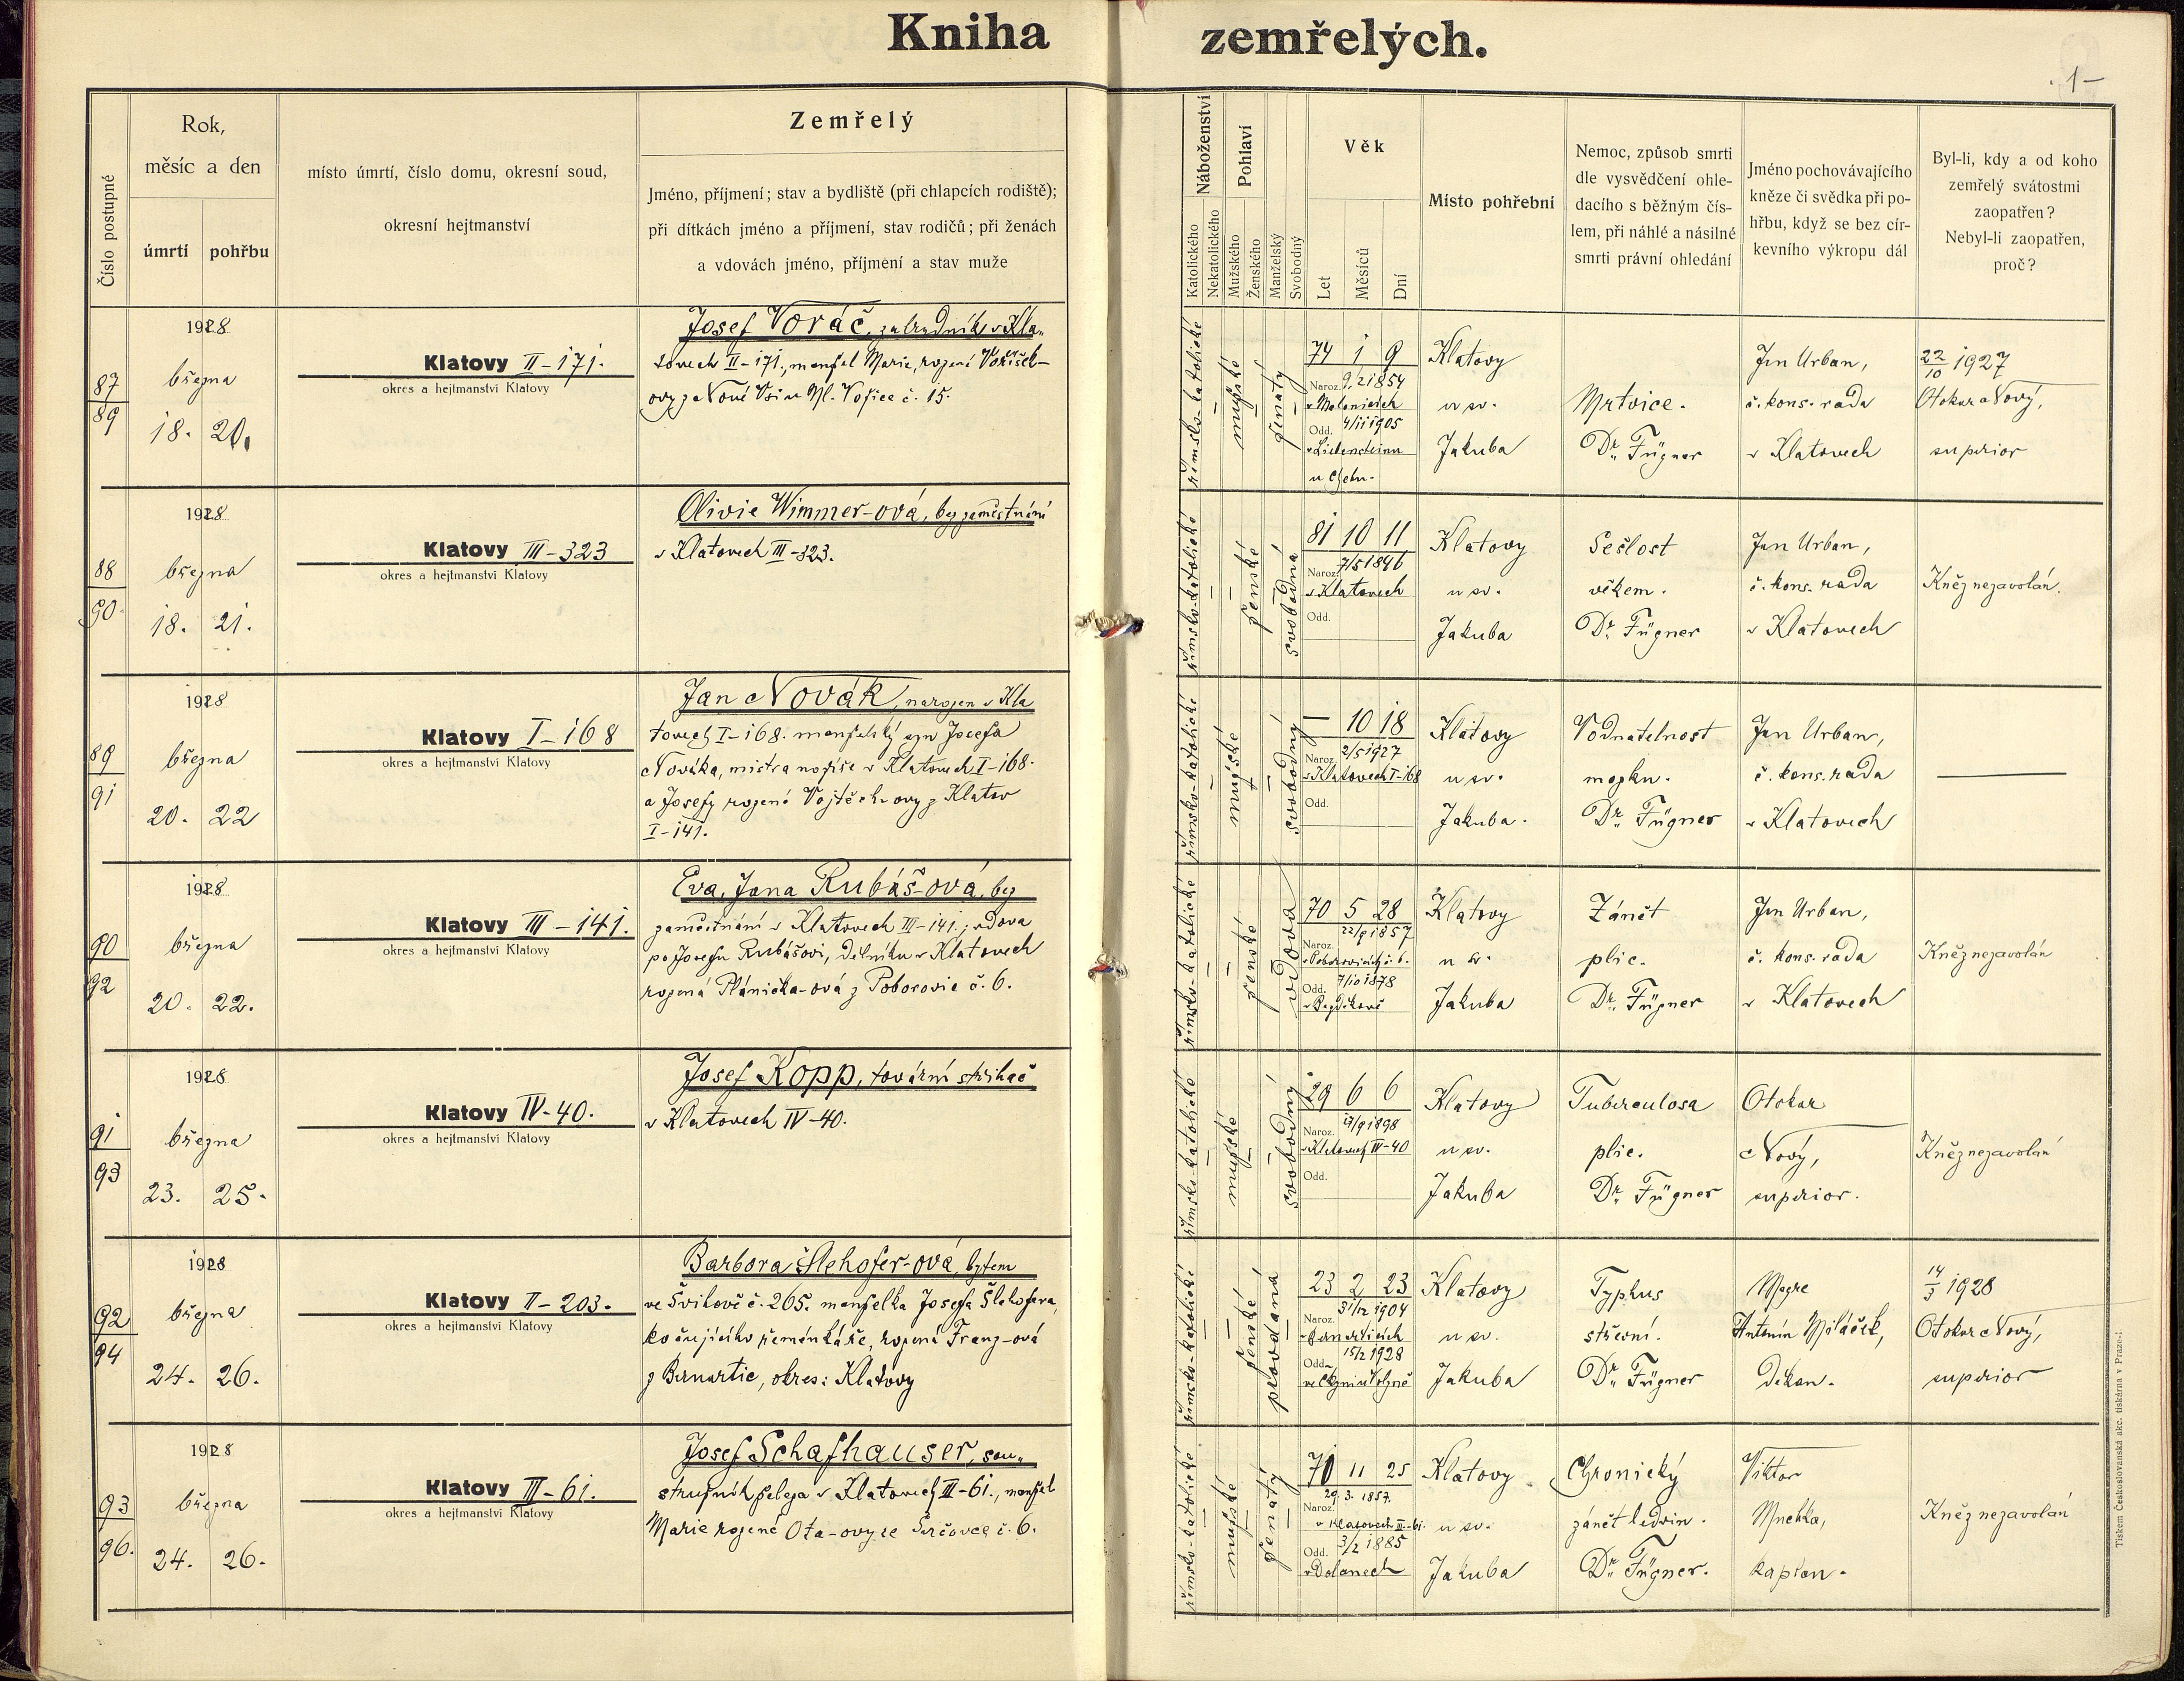 Kniha zemřelých.
1-
Číslo postupné
Rok,
měsíc a den
úmrtí
pohřbu
místo úmrtí, číslo domu, okresní soud,
okresní hejtmanství
Zemřelý
Jméno, příjmení; stav a bydliště (při chlapcích rodiště);
při dítkách jméno a příjmení, stav rodičů; při ženách
a vdovách jméno, příjmení a stav muže
Náboženství
Katolického
Nekatolického
Pohlaví
Mužského
Ženského
Manželský
Svobodný
Věk
Let
Měsíců
Dní
Místo pohřební
Nemoc, způsob smrti
dle vysvědčení ohle-
dacího s běžným čís-
lem, při náhlé a násilné
smrti právní ohledání
Jméno pochovávajícího
kněze či svědka při po-
hřbu, když se bez cír-
kevního výkropu dál
Byl-li, kdy a od koho
zemřelý svátostmi
zaopatřen?
Nebyl-li zaopatřen,
proč?
87
89
1928
března
18. 20.
Klatovy II-171.
okres a hejtmanství Klatovy
Josef Voráč, zahradník v Kla-
tovech II-171., manžel Marie, rozené Voříšek-
ovy z Nové Vsi u Ml. Vožice č. 15.
římsko-katolické
mužské
ženatý
74 1 9
Naroz. 9/2 1854
Odd. 4/11 1905
Klatovy
u sv.
Jakuba
Mrtvice.
Dr. Fügner
Jan Urban,
č. kons. rada
v Klatovech
22/10 1927
Otokar Nový,
superior
88
90.
1928
března
18. 21.
Klatovy III-323
okres a hejtmanství Klatovy
Olivie Wimmer-ová, bez zaměstnání
v Klatovech III-323.
římsko-katolické
ženské
svobodná
81 10 11
Naroz. 7/5 1846
v Klatovech
Odd.
Klatovy
u sv.
Jakuba
Sešlost
věkem.
Dr. Fügner
Jan Urban,
č. kons. rada
v Klatovech
Kněz nezavolán.
89
91
1928
března
20. 22
Klatovy I-168
okres a hejtmanství Klatovy
Jan Novák, narozen v Kla
tovech I-168. manželský syn Josefa
Nováka, mistra nožíře v Klatovech I-168.
a Josefy rozené Vojtěch-ovy z Klatov
I-141.
římsko-katolické
mužské
svobodný
— 10 18
Naroz. 2/5 1927
v Klatovech I-168
Odd.
Klatovy
u sv.
Jakuba.
Vodnatelnost
mozku.
Dr. Fügner
Jan Urban,
č. kons. rada
v Klatovech
90
92
1928
března
20. 22.
Klatovy III-141.
okres a hejtmanství Klatovy
Eva, Jana Rubáš-ová, bez
zaměstnání v Klatovech III-141.; vdova
po Josefu Rubášovi, dělníku v Klatovech
rozená Plánička-ová z Poborovic č. 6.
římsko-katolické
ženské
vdova
70 5 28
Naroz. 22/9 1857
v Poborovicích č. 6.
Odd. 7/10 1878
Klatovy
u sv.
Jakuba
Zánět
plic.
Dr. Fügner
Jan Urban,
č. kons. rada
v Klatovech
Kněz nezavolán
91
93
1928
března
23. 25.
Klatovy IV-40.
okres a hejtmanství Klatovy
Josef Kopp, tovární střihač
v Klatovech IV-40.
římsko-katolické
mužské
svobodný
29 6 6
Naroz. 17/9 1898
v Klatovech IV-40
Odd.
Klatovy
u sv.
Jakuba
Tuberculosa
plic.
Dr. Fügner
Otokar
Nový,
superior.
Kněz nezavolán
92
94
1928
března
24. 26.
Klatovy II-203.
okres a hejtmanství Klatovy
Barbora Šlehofer-ová, bytem
ve Švihově č. 265. manželka Josefa Šlehofera,
kočujícího řemenkáře, rozená Franz-ová
z Bernartic, okres: Klatovy
římsko-katolické
ženské
provdaná
23 2 23
Naroz. 31/12 1904
Odd. 15/2 1928
Klatovy
u sv.
Jakuba
Typhus
střevní.
Dr. Fügner
Msgre
Antonín Miláček,
děkan.
14/3 1928
Otokar Nový,
superior
93
96.
1928
března
24. 26.
Klatovy III-61.
okres a hejtmanství Klatovy
Josef Schafhauser, sou-
stružník železa v Klatovech III-61., manžel
Marie rozené Ota-ovy ze Srčovce č. 6.
římsko-katolické
mužské
ženatý
70 11 25
Naroz. 29. 3. 1857.
v Klatovech III-61.
Odd. 3/2 1885
v Dolanech
Klatovy
u sv.
Jakuba
Chronický
zánět ledvin.
Dr. Fügner.
Viktor
Mnehka,
kaplan.
Kněz nezavolán
Tiskem Československá akc. tiskárna v Praze-I.